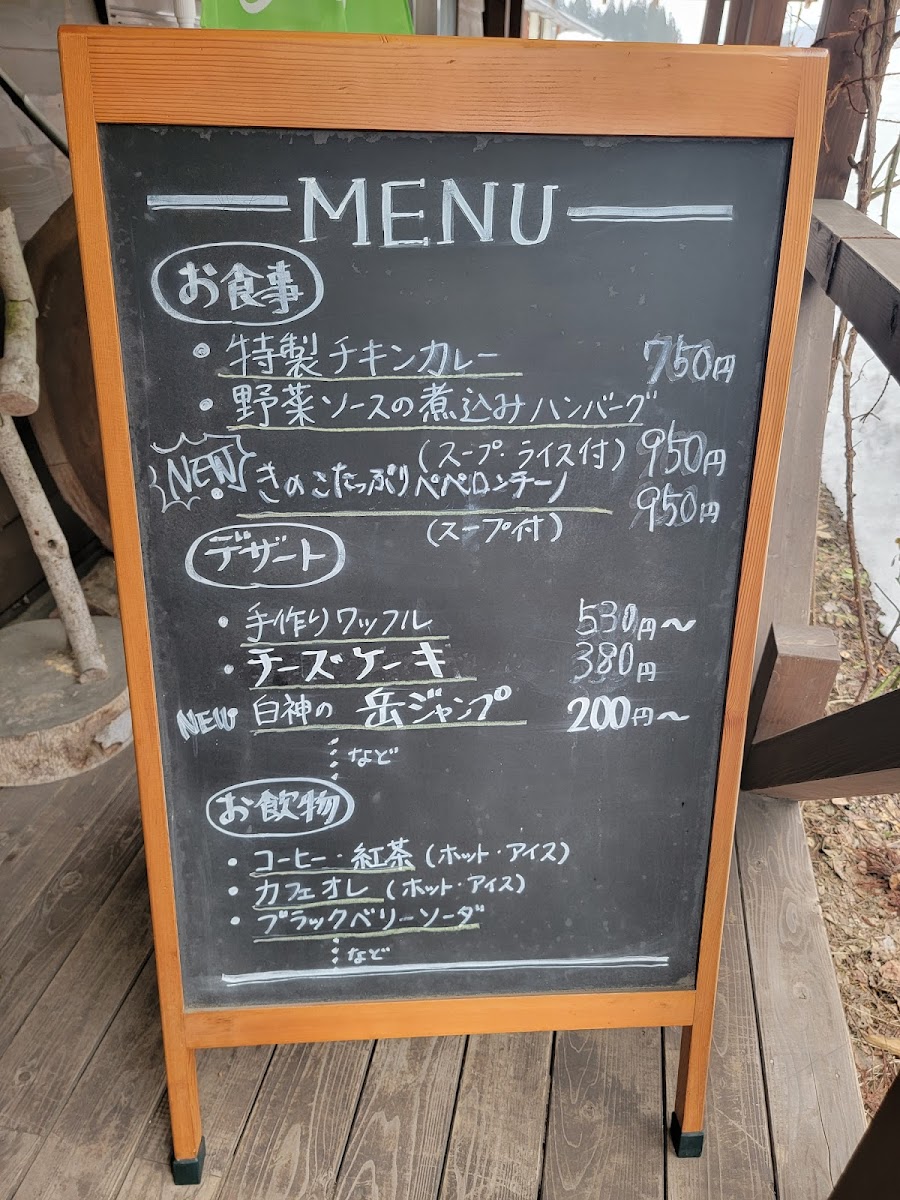 MENU
お食事
・特製チキンカレー 750円
・野菜ソースの煮込みハンバーグ
(スープ・ライス付) 950円
NEW ・きのこたっぷりペペロンチーノ 950円
(スープ付)
デザート
・手作りワッフル 530円〜
・チーズケーキ 380円
NEW 白神の岳ジャンプ 200円〜
など
お飲物
・コーヒー・紅茶 (ホット・アイス)
・カフェオレ (ホット・アイス)
・ブラックベリーソーダ
など